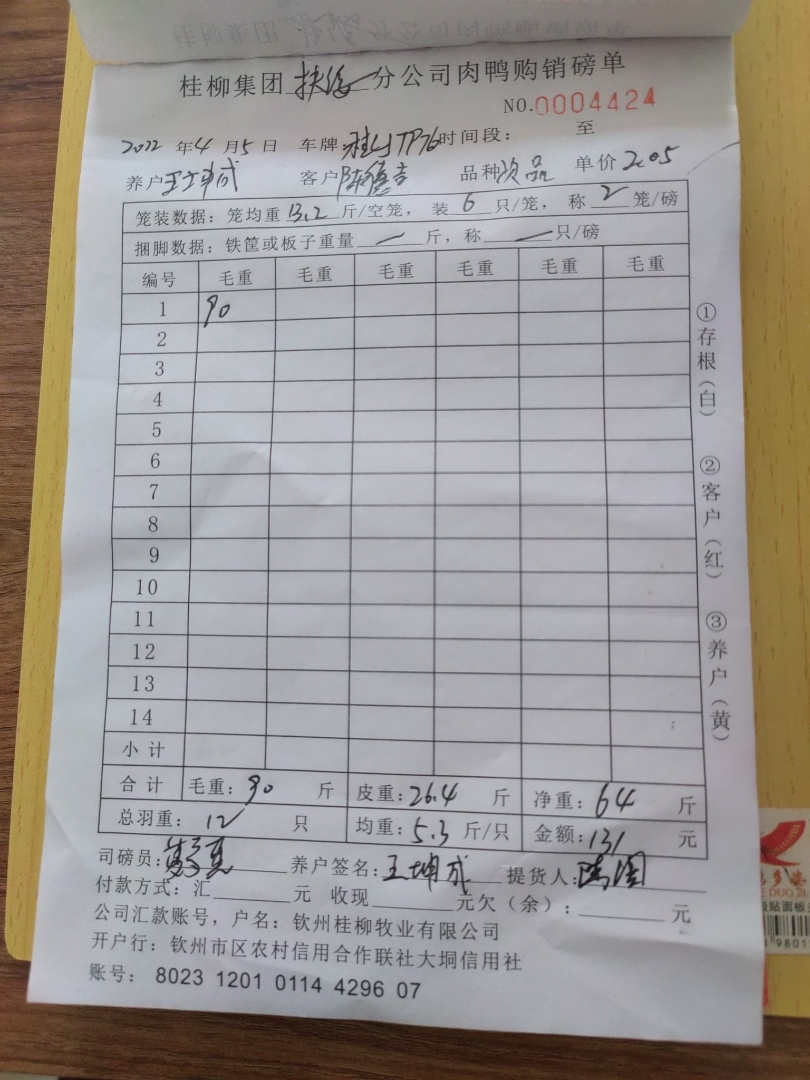 桂柳集团扶绥分公司肉鸭购销磅单
NO.0004424
2022 年 4 月 5 日 车牌 时间段： 至
养户 王坤成 客户 陈德吉 品种 次品 单价 2.05
笼装数据：笼均重 13.2 斤/空笼，装 6 只/笼，称 2 笼/磅
捆脚数据：铁筐或板子重量 — 斤，称 — 只/磅
编号 毛重 毛重 毛重 毛重 毛重 毛重
1 90
2
3
4
5
6
7
8
9
10
11
12
13
14
小计
合计 毛重：90 斤 皮重：26.4 斤 净重：64 斤
总羽重：12 只 均重：5.3 斤/只 金额：131 元
司磅员： 养户签名：王坤成 提货人：
付款方式：汇 元 收现 元欠（余）： 元
公司汇款账号，户名：钦州桂柳牧业有限公司
开户行：钦州市区农村信用合作联社大垌信用社
账号：8023 1201 0114 4296 07
①存根（白）
②客户（红）
③养户（黄）